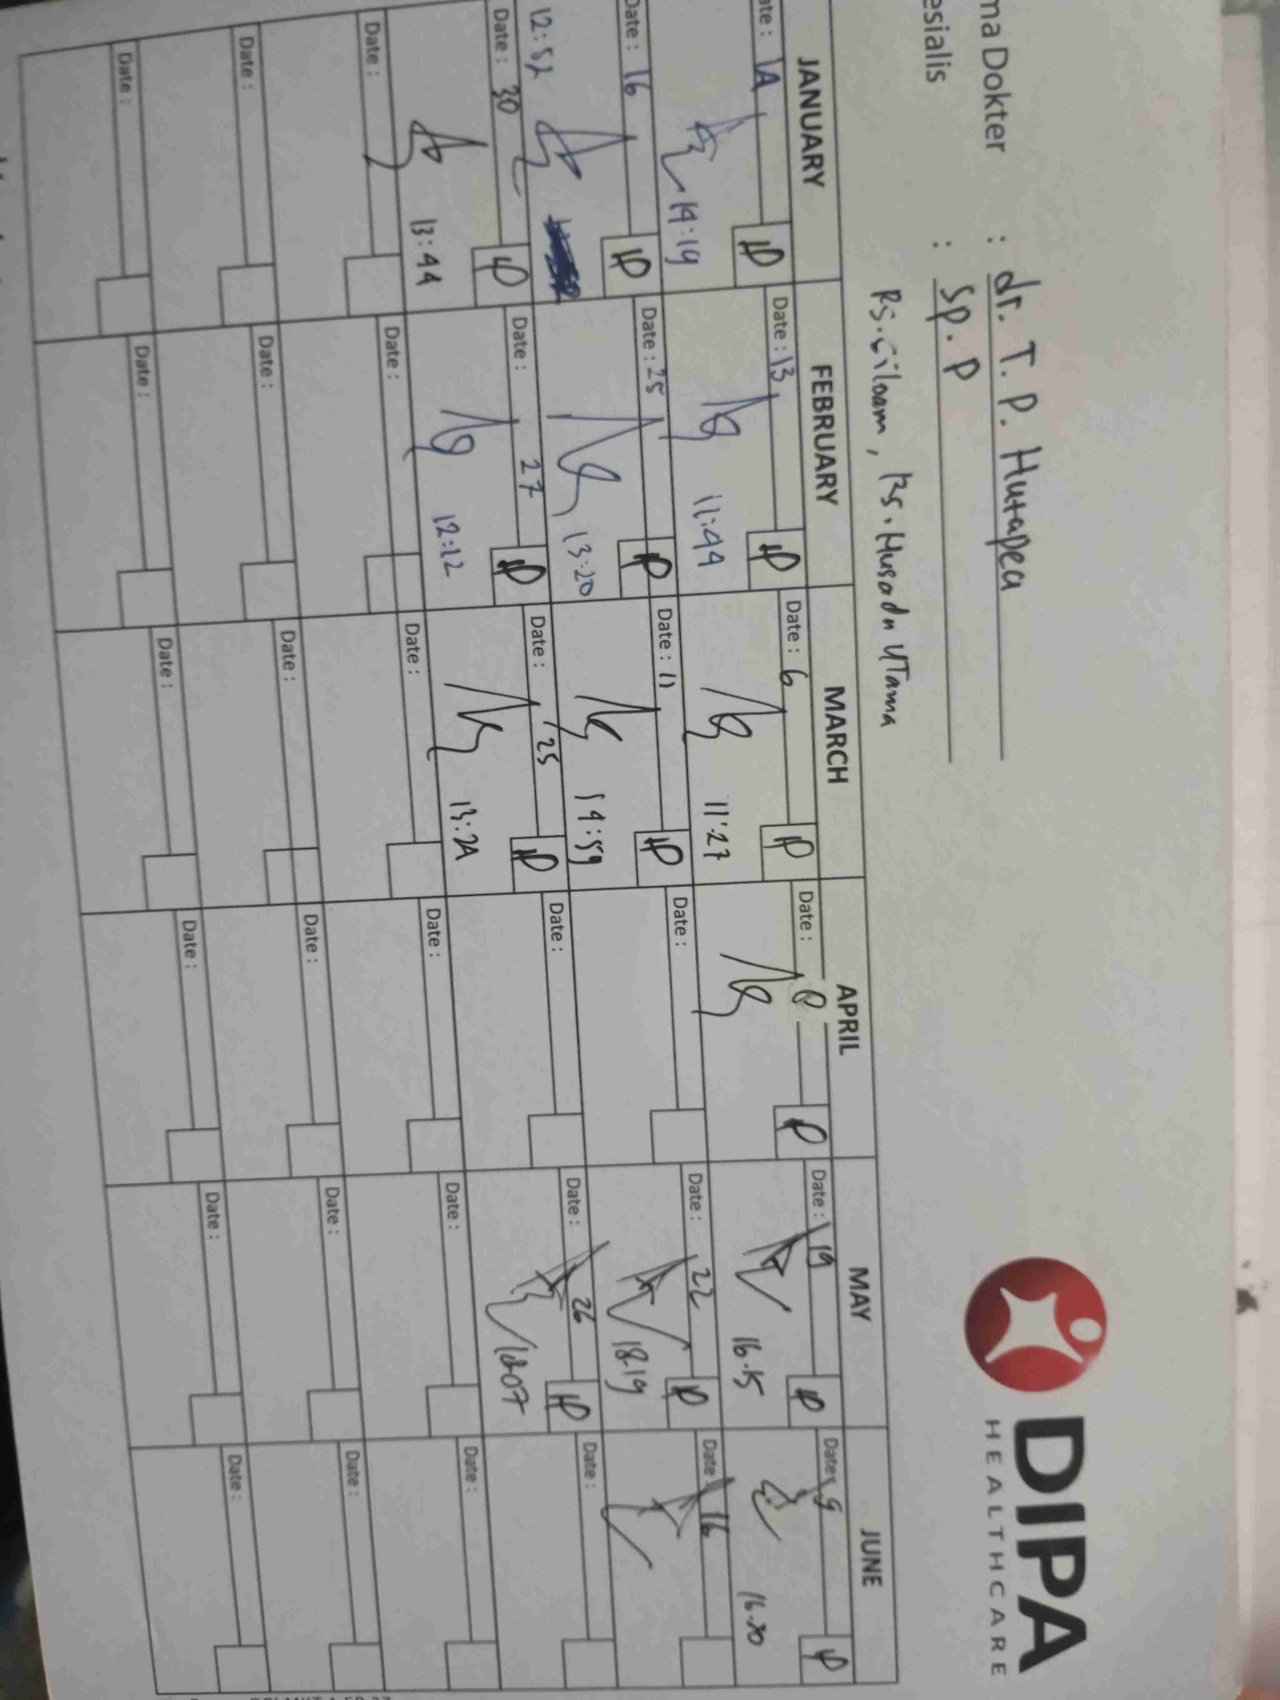 DIPA
HEALTHCARE
ma Dokter : dr. T. P. Hutapea
esialis : Sp. P
Rs. Siloam, Rs. Husada UTama
JANUARY FEBRUARY MARCH APRIL MAY JUNE
ate : 1A Date : 13 Date : 6 Date : Date : 19 Date : 9
14:19 11:44 11:27 16.15 16.20
Date : 16 Date : 25 Date : 11 Date : Date : 22 Date : 16
12:52 13:20 14:59 18.19
Date : 30 Date : 27 Date : 25 Date : Date : 26 Date :
13:4A 12:12 13:2A
Date : Date : Date : Date : Date : Date :
Date : Date : Date : Date : Date : Date :
Date : Date : Date : Date : Date : Date :